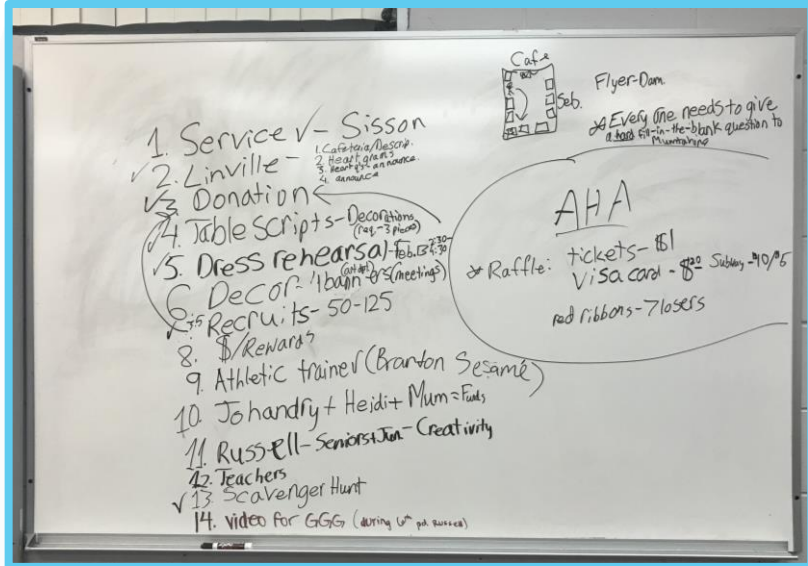 Cafe
Seb.
Flyer-Dam.
Every one needs to give
a hard fill-in-the-blank question to
1. Service √- Sisson
2. Linville-
1. Cafeteria/Descrip.
2. Heart grams
3. announce.
4. announce
3. Donation
4. Table scripts-Decorations
(req.-3 pieces)
5. Dress rehearsal-Feb.
6. Decor- (meetings)
Recruits- 50-125
8. $/Rewards
9. Athletic trainer (Sesame)
10. Johandry + Heidi + Mum = Funds
11. Russell-Seniors+Jun-Creativity
12. Teachers
13. Scavenger Hunt
14. video for GGG (during 6th pd. Russell)
AHA
Raffle: tickets-$1
Visa card - $20 Subway -$10/$5
red ribbons-7 losers